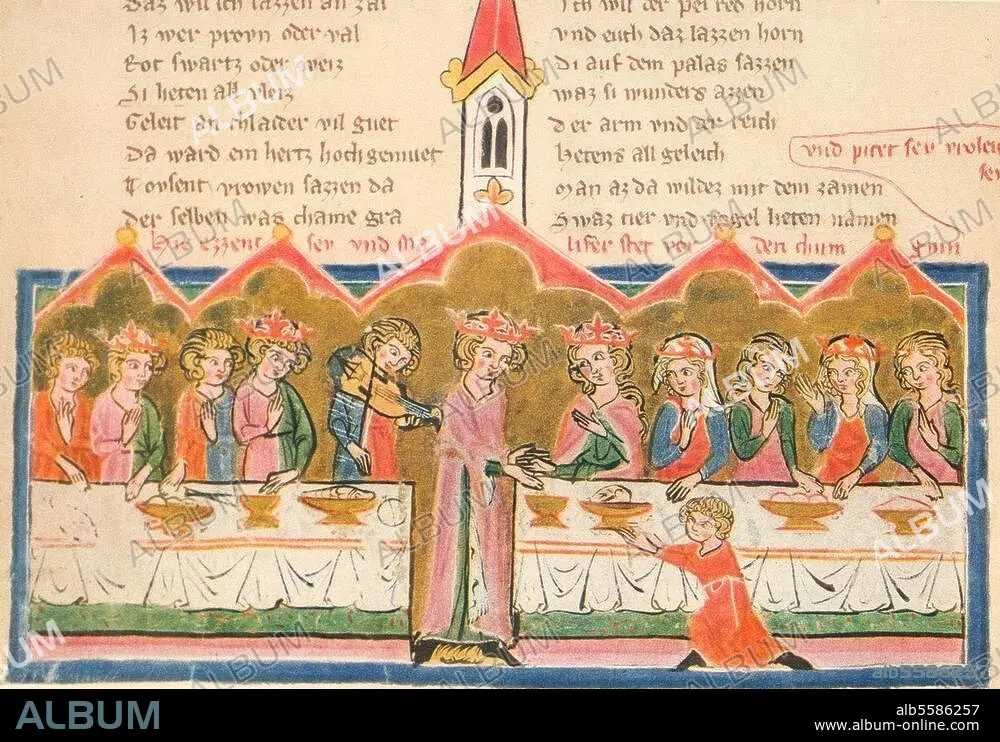 daz wil ich lazzen an zal
Iz wer provn oder val
Rot swartz oder weiz
Si heten all vleiz
Geleit an chlaider vil guet
Da ward ein hertz hochgemuet
Tovsent vrowen sazzen da
Der selben was chaine gra
Ich wil der pei red horn
vnd euch daz lazzen horn
Di auf dem palas sazzen
waz si wunders azzen
Der arm vnd der reich
Hetens all geleich
Man az da wildez mit dem zamen
Swaz tier vnd vogel heten namen
vnd pitet sev vroleich
sey
Hie ezzent sey vnd
stet vor den chum
ALBUM
alb5586257
www.album-online.com